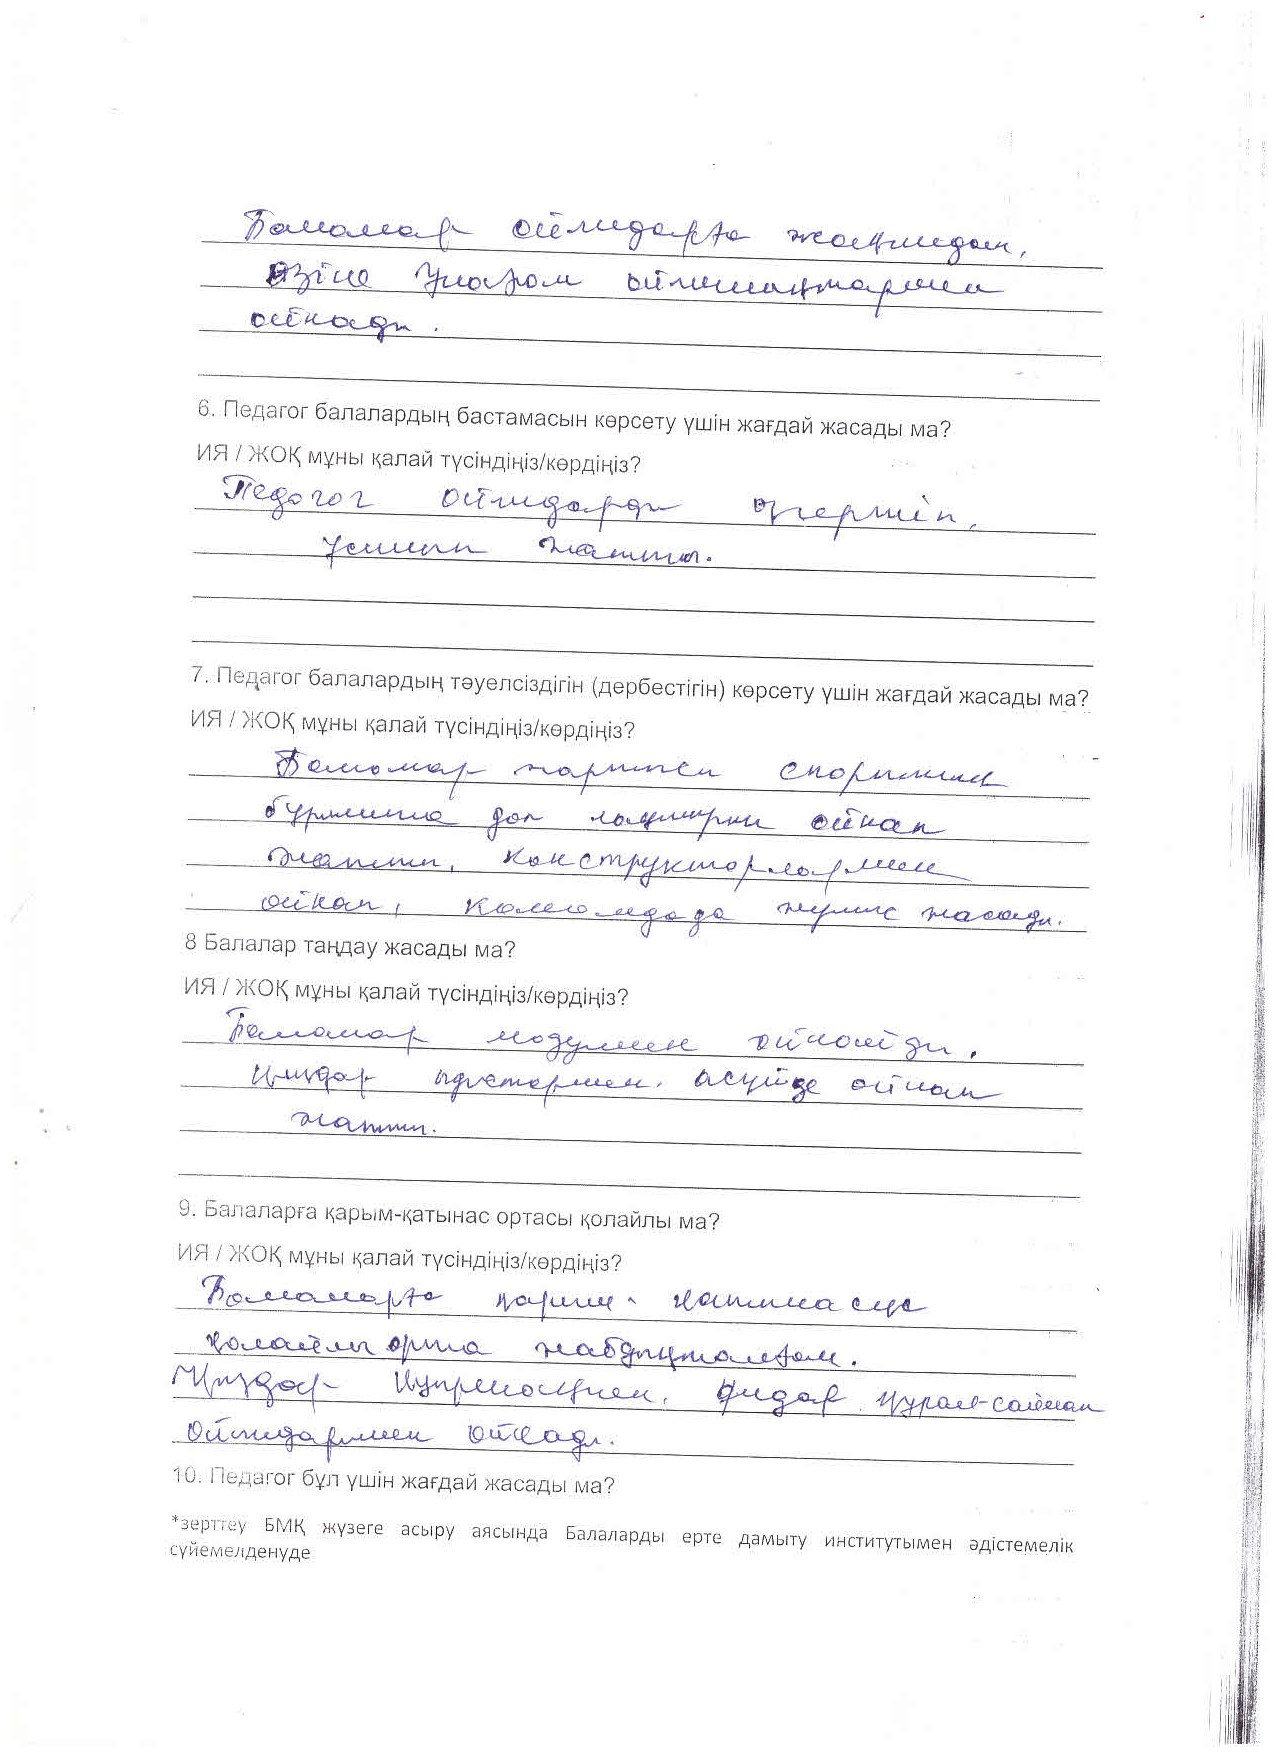 Балалар ойындарға жақындап,
Өзіне ұнаған ойыншықтармен
ойнады.
6. Педагог балалардың бастамасын көрсету үшін жағдай жасады ма?
ИЯ / ЖОҚ мұны қалай түсіндіңіз/көрдіңіз?
Педагог ойындарды өзгертіп,
ұсынып жатты.
7. Педагог балалардың тәуелсіздігін (дербестігін) көрсету үшін жағдай жасады ма?
ИЯ / ЖОҚ мұны қалай түсіндіңіз/көрдіңіз?
Балалар жартысы спорттық
бұрышта доп лақтырып ойнап
жатты, конструкторлармен
ойнап, қолөнерде жұмыс жасады.
8 Балалар таңдау жасады ма?
ИЯ / ЖОҚ мұны қалай түсіндіңіз/көрдіңіз?
Балалар модулмен ойнайды,
қыздар ыдыстармен, асүйде ойнап
жатты.
9. Балаларға қарым-қатынас ортасы қолайлы ма?
ИЯ / ЖОҚ мұны қалай түсіндіңіз/көрдіңіз?
Балаларға қарым-қатынасқа
қолайлы орта жабдықталған.
Қыздар қуыршақпен, ұлдар құрал-сайман
ойындармен ойнады.
10. Педагог бұл үшін жағдай жасады ма?
*зерттеу БМҚ жүзеге асыру аясында Балаларды ерте дамыту институтымен әдістемелік
сүйемелденуде